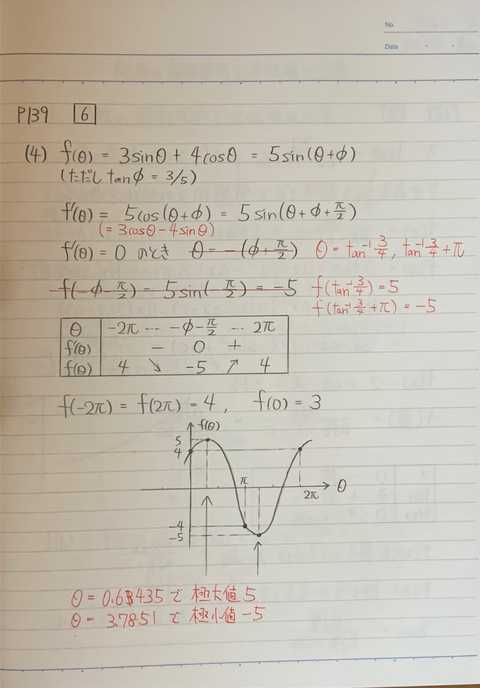 No.
Date
P139 6
(4) f(θ) = 3sinθ + 4cosθ = 5sin(θ+φ)
(ただし tanφ = 3/5)
f'(θ) = 5cos(θ+φ) = 5sin(θ+φ+π/2)
(= 3cosθ - 4sinθ)
f'(θ) = 0 のとき θ = -(φ+π/2) θ = tan⁻¹3/4, tan⁻¹3/4+π
f(-φ-π/2) = 5sin(-π/2) = -5 f(tan⁻¹3/4) = 5
f(tan⁻¹3/4+π) = -5
θ -2π … -φ-π/2 … 2π
f'(θ) - 0 +
f(θ) 4 ↘ -5 ↗ 4
f(-2π) = f(2π) = 4, f(0) = 3
f(θ)
5
4
π
2π
θ
-4
-5
θ = 0.6435 で 極大値 5
θ = 3.7851 で 極小値 -5